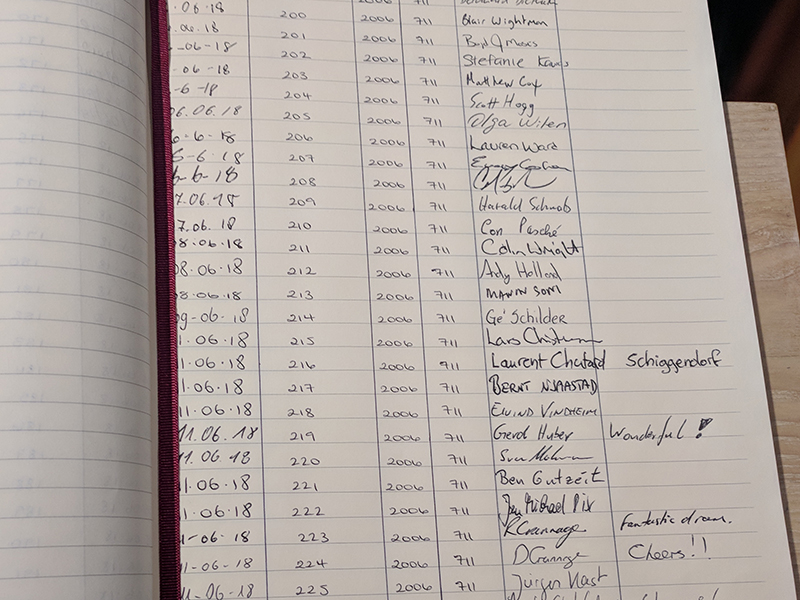 .06.18 200 2006 711 Blair Wightman
.06.18 201 2006 711
-06-18 202 2006 711 Stefanie
-06-18 203 2006 711 Matthew Coy
-6-18 204 2006 711 Scott Hogg
06.06.18 205 2006 711 Olga Wilen
6-6-18 206 2006 711 Lauren Ward
6-6.18 207 2006 711
6-6-18 208 2006 711
7.06.18 209 2006 711 Harald Schwob
7.06.18 210 2006 711 Con Pasché
08.06.18 211 2006 711 Colin Wright
08.06.18 212 2006 711 Andy Holland
08.06.18 213 2006 711 SOM
09-06-18 214 2006 711 Gé Schilder
1.06.18 215 2006 711 Lars
1.06.18 216 2006 711 Laurent Chatard Schiggendorf
11.06.18 217 2006 711 BERNT NJAASTAD
11.06.18 218 2006 711 EIVIND VINDHEIM
11.06.18 219 2006 711 Gerold Huber Wonderful!
11.06.18 220 2006 711
11.06.18 221 2006 711 Ben Gutzeit
11.06.18 222 2006 711 Michael Pix
11-06-18 223 2006 711 RCrannage Fantastic dram.
11-06-18 224 2006 711 DCrannage Cheers!!
11-06-18 225 2006 711 Jürgen Vlast